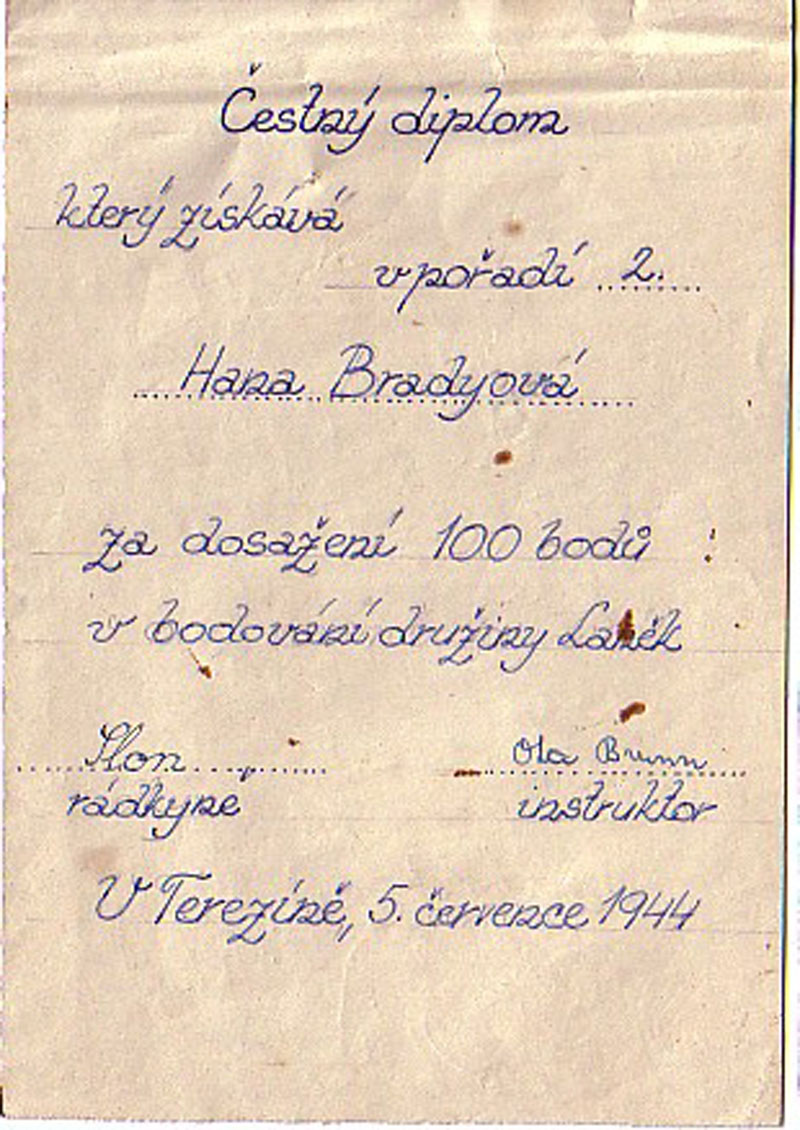 Čestný diplom
který získává
v pořadí 2.
Hana Bradyová
za dosažení 100 bodů
v bodování družiny Laněk
Slon Ota Brunn
rádkyně instruktor
V Terezíně, 5. července 1944